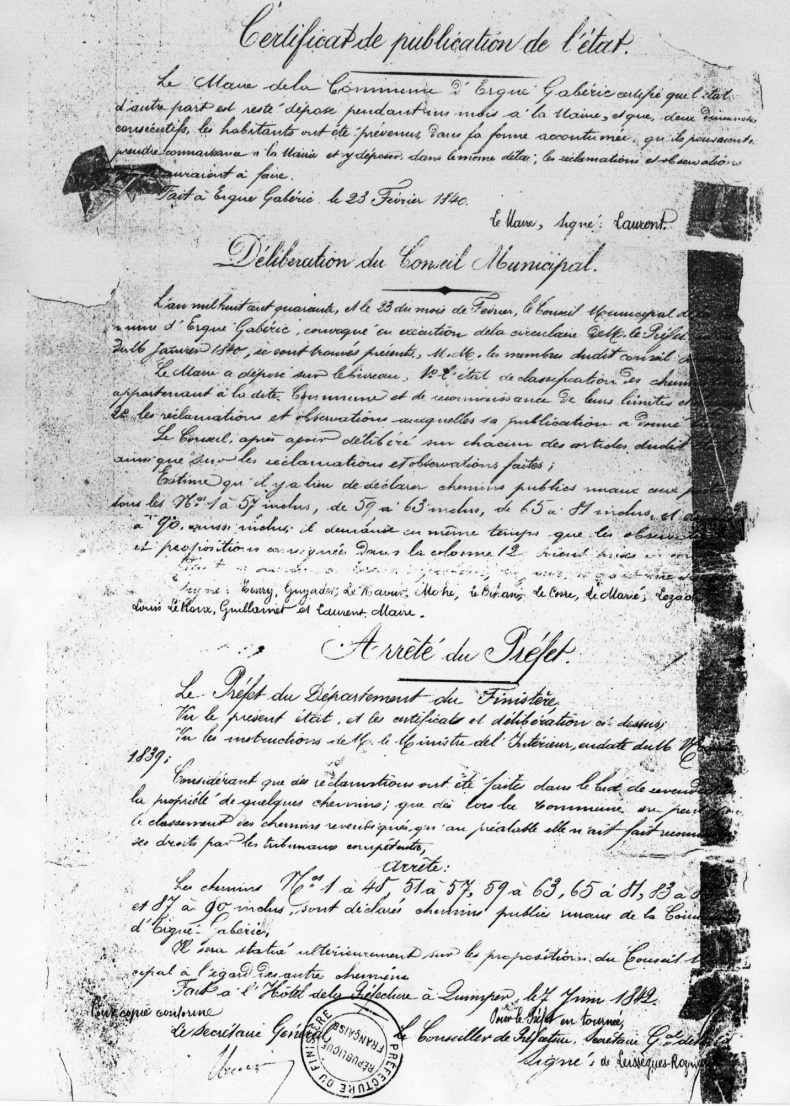 Certificat de publication de l'état.
Le Maire de la Commune d'Ergué Gabéric certifie que l'état
d'autre part est resté déposé pendant un mois à la Mairie, et que, deux dimanches
consécutifs, les habitants ont été prévenus, dans la forme accoutumée, qu'ils pouvaient
prendre connaissance à la Mairie et y déposer, dans le même délai, les réclamations et observations
auraient à faire.
Fait à Ergué Gabéric le 23 Février 1840.
Le Maire, signé: Laurent.
Délibération du Conseil Municipal.
L'an mil huit cent quarante, et le 23 du mois de Février, le Conseil Municipal de la
mune d'Ergué Gabéric, convoqué en exécution de la circulaire de M. le Préfet
du 16 Janvier 1840, se sont trouvés présents, M.M. les membres dudit conseil
Le Maire a déposé sur le bureau, 1º L'état de classification des chemins
appartenant à la dite Commune et de reconnaissance de leurs limites et
2º les réclamations et observations auxquelles sa publication a donné
Le Conseil, après avoir délibéré sur chacun des articles dudit
ainsi que sur les réclamations et observations faites;
Estime qu'il y a lieu de déclarer chemins publics ruraux ceux
sous les Nos 1 à 57 inclus, de 59 à 63 inclus, de 65 à 81 inclus, et
à 90 aussi inclus; il demande en même temps que les observations
et propositions consignées dans la colonne 12 soient prises en
Signé: Henry, Guyader, Le Naour, Mahé, le Bihan, Le Corre, Le Marié,
Louis Le Roux, Guillamet et Laurent, Maire.
Arrêté du Préfet.
Le Préfet du Département du Finistère
Vu le présent état, et les certificats et délibération ci-dessus;
Vu les instructions de M. le Ministre de l'Intérieur, en date du 16
1839;
Considérant que des réclamations ont été faites dans le but de revendiquer
la propriété de quelques chemins; que dès lors la Commune ne peut
le classement des chemins revendiqués, qu'au préalable elle n'ait fait
ses droits par les tribunaux compétents,
Arrête:
Les chemins Nos 1 à 48, 51 à 57, 59 à 63, 65 à 81, 83 à
et 87 à 90 inclus, sont déclarés chemins publics ruraux de la
d'Ergué-Gabéric.
Il sera statué ultérieurement sur les propositions du Conseil
cipal à l'égard des autre chemins
Fait à l'Hôtel de la Préfecture à Quimper, le 7 Juin 1842.
Pour copie conforme
Pour le Préfet en tournée,
Le Secrétaire Général
Le Conseiller de Préfecture, Secrétaire Gal
Signé: de Leissègues-
PREFECTURE DU FINISTERE
REPUBLIQUE FRANÇAISE